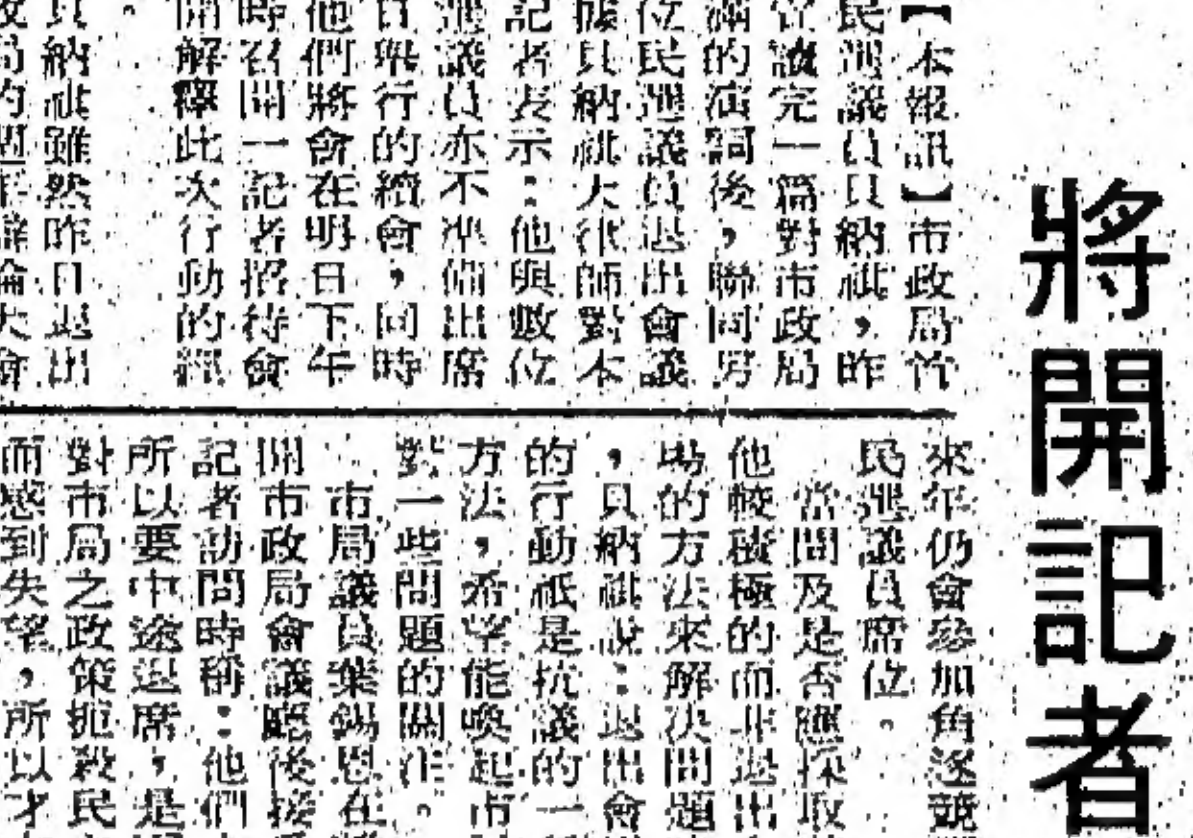 將開記者
【本報訊】市政局首
民選議員貝納祇，昨
會讀完一篇對市政局
滿的演詞後，聯同另
位民選議員退出會議
據貝納祇大律師對本
記者表示：他與數位
選議員亦不準備出席
日舉行的續會，同時
他們將會在明日下午
時召開一記者招待會
開解釋此次行動的經
。
貝納祇雖然昨日退出
政局的週年辯論大會
來年仍會參加角逐競
民選議員席位。
當問及是否應採取
他較積極的而非退出
場的方法來解決問題
，貝納祇說：退出會
的行動祇是抗議的一
方法，希望能喚起市
對一些問題的關注。
市局議員葉錫恩在
開市政局會議廳後接
記者訪問時稱：他們
所以要中途退席，是
對市局之政策扼殺民
而感到失望，所以才